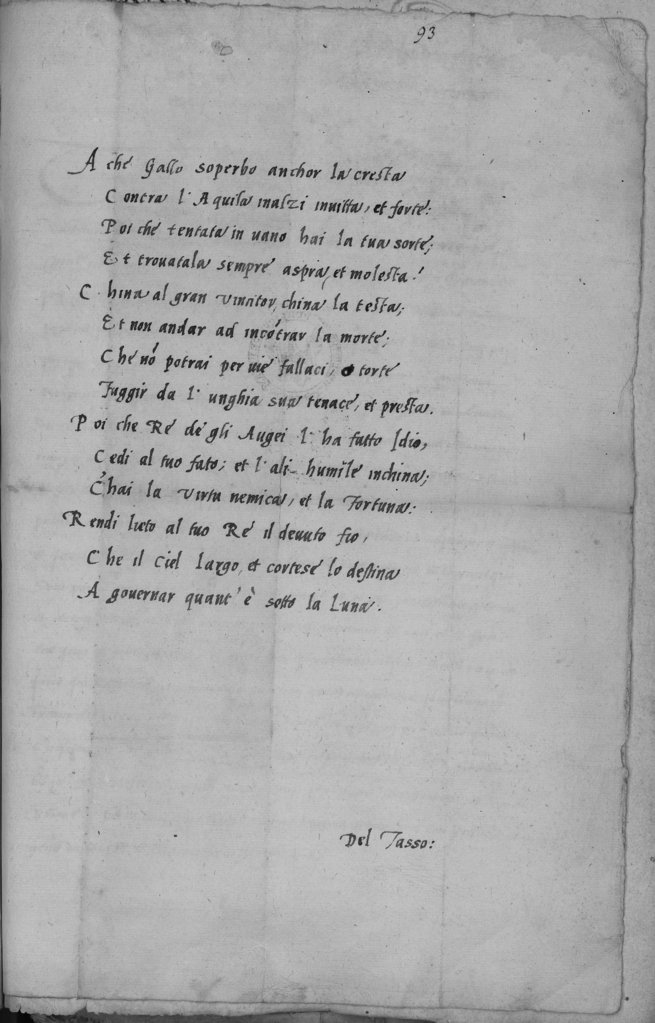 93
A che Gallo soperbo anchor la cresta
Contra l'Aquila inalzi inuitta, et forte:
Poi che tentata in uano hai la tua sorte;
Et trouatala sempre aspra, et molesta!
China al gran vincitor, china la testa;
Et non andar ad incōtrar la morte;
Che nō potrai per uie fallaci, o torte
Fuggir da l'unghia sua tenace, et presta.
Poi che Re de gli Augei l'ha fatto Idio,
Cedi al tuo fato; et l'ali humile inchina;
C'hai la virtu nemica, et la Fortuna:
Rendi lieto al tuo Re il deuuto fio,
Che il Ciel largo, et cortese lo destina
A gouernar quant'è sotto la Luna.
Del Tasso: